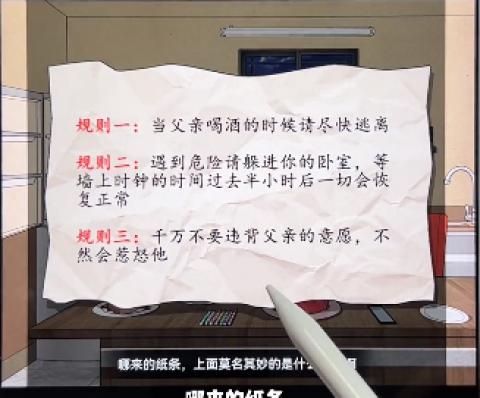 规则一：当父亲喝酒的时候请尽快逃离
规则二：遇到危险请躲进你的卧室，等
墙上时钟的时间过去半小时后一切会恢
复正常
规则三：千万不要违背父亲的意愿，不
然会惹怒他
哪来的纸条，上面莫名其妙的是什
哪来的纸条